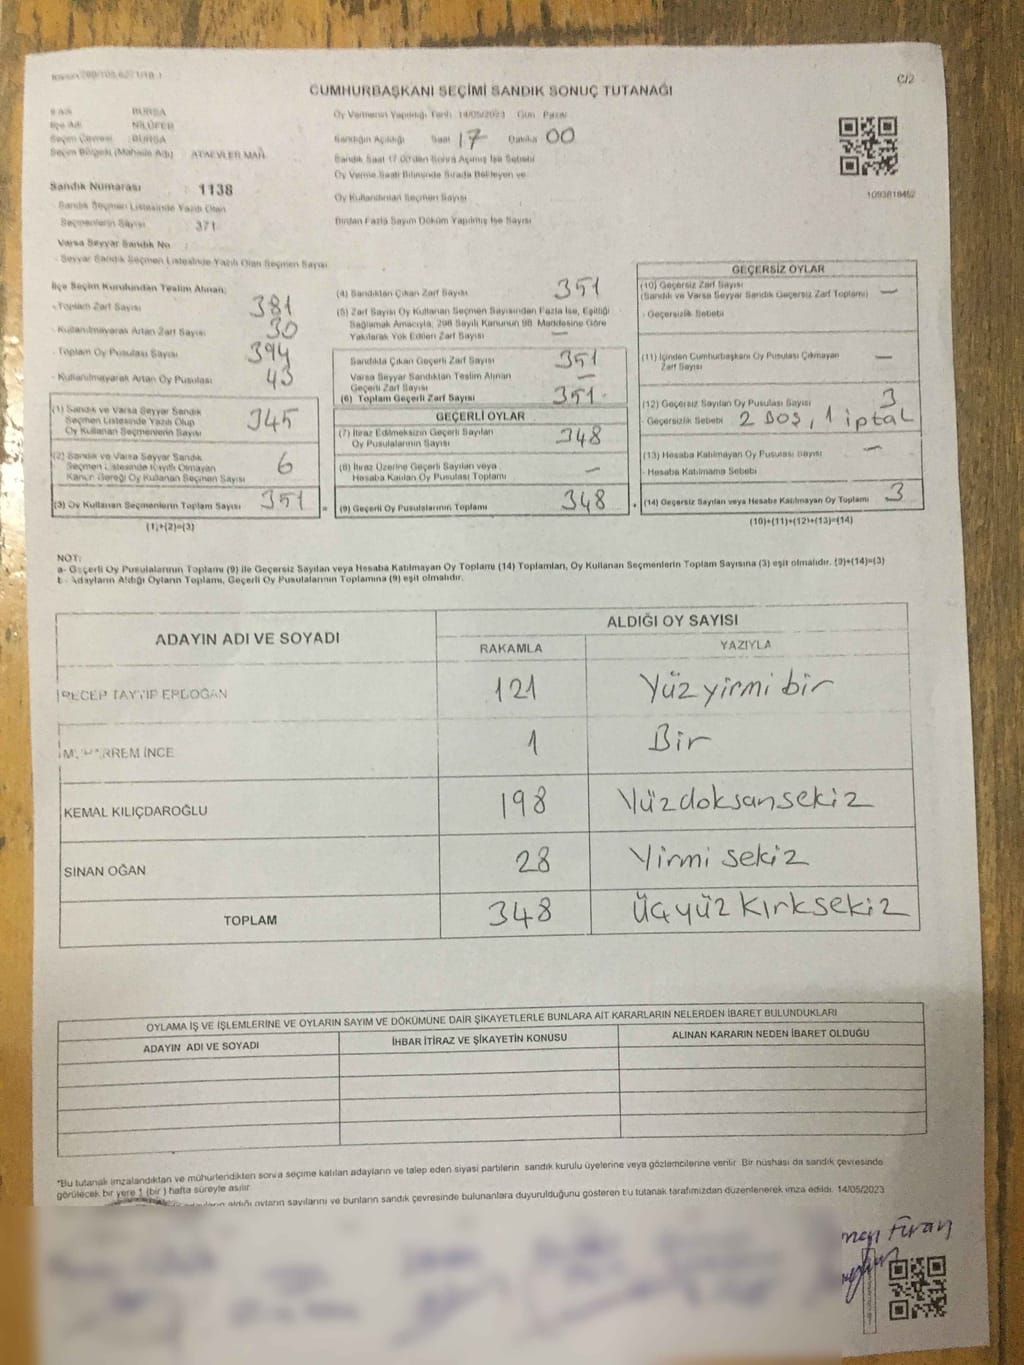 C/2
CUMHURBAŞKANI SEÇİMİ SANDIK SONUÇ TUTANAĞI
İl Adı : BURSA
İlçe Adı : NİLÜFER
Seçim Çevresi : BURSA
Seçim Bölgesi (Mahalle Adı) : ATAEVLER MAH.
Oy Vermenin Yapıldığı Tarih : 14/05/2023 Gün : Pazar
Sandığın Açıldığı Saat 17 Dakika 00
Sandık Saat 17.00'den Sonra Açılmış İse Sebebi
Oy Verme Saati Bitiminde Sırada Bekleyen ve
Oy Kullandırılan Seçmen Sayısı
Birden Fazla Sayım Döküm Yapılmış İse Sayısı
1093818452
Sandık Numarası : 1138
Sandık Seçmen Listesinde Yazılı Olan
Seçmenlerin Sayısı : 371
Varsa Seyyar Sandık No :
- Seyyar Sandık Seçmen Listesinde Yazılı Olan Seçmen Sayısı
İlçe Seçim Kurulundan Teslim Alınan;
- Toplam Zarf Sayısı 381
- Kullanılmayarak Artan Zarf Sayısı 30
- Toplam Oy Pusulası Sayısı 394
- Kullanılmayarak Artan Oy Pusulası 43
(1) Sandık ve Varsa Seyyar Sandık
Seçmen Listesinde Yazılı Olup
Oy Kullanan Seçmenlerin Sayısı 345
(2) Sandık ve Varsa Seyyar Sandık
Seçmen Listesinde Kayıtlı Olmayan
Kanun Gereği Oy Kullanan Seçmen Sayısı 6
(3) Oy Kullanan Seçmenlerin Toplam Sayısı 351
(1)+(2)=(3)
(4) Sandıktan Çıkan Zarf Sayısı 351
(5) Zarf Sayısı Oy Kullanan Seçmen Sayısından Fazla İse, Eşitliği
Sağlamak Amacıyla, 298 Sayılı Kanunun 98. Maddesine Göre
Yakılarak Yok Edilen Zarf Sayısı —
Sandıkta Çıkan Geçerli Zarf Sayısı 351
Varsa Seyyar Sandıktan Teslim Alınan
Geçerli Zarf Sayısı —
(6) Toplam Geçerli Zarf Sayısı 351.
GEÇERLİ OYLAR
(7) İtiraz Edilmeksizin Geçerli Sayılan
Oy Pusulalarının Sayısı 348
(8) İtiraz Üzerine Geçerli Sayılan veya
Hesaba Katılan Oy Pusulası Toplamı —
(9) Geçerli Oy Pusulalarının Toplamı 348
GEÇERSİZ OYLAR
(10) Geçersiz Zarf Sayısı
(Sandık ve Varsa Seyyar Sandık Geçersiz Zarf Toplamı) —
- Geçersizlik Sebebi
(11) İçinden Cumhurbaşkanı Oy Pusulası Çıkmayan
Zarf Sayısı —
(12) Geçersiz Sayılan Oy Pusulası Sayısı 3
Geçersizlik Sebebi 2 Boş, 1 iptal
(13) Hesaba Katılmayan Oy Pusulası Sayısı —
- Hesaba Katılmama Sebebi
(14) Geçersiz Sayılan veya Hesaba Katılmayan Oy Toplamı 3
(10)+(11)+(12)+(13)=(14)
NOT:
a- Geçerli Oy Pusulalarının Toplamı (9) ile Geçersiz Sayılan veya Hesaba Katılmayan Oy Toplamı (14) Toplamları, Oy Kullanan Seçmenlerin Toplam Sayısına (3) eşit olmalıdır. (9)+(14)=(3)
b - Adayların Aldığı Oyların Toplamı, Geçerli Oy Pusulalarının Toplamına (9) eşit olmalıdır.
ADAYIN ADI VE SOYADI
ALDIĞI OY SAYISI
RAKAMLA YAZIYLA
RECEP TAYYİP ERDOĞAN 121 Yüz yirmi bir
MUHARREM İNCE 1 Bir
KEMAL KILIÇDAROĞLU 198 Yüzdoksansekiz
SİNAN OĞAN 28 Yirmi sekiz
TOPLAM 348 Üçyüz kırksekiz
OYLAMA İŞ VE İŞLEMLERİNE VE OYLARIN SAYIM VE DÖKÜMÜNE DAİR ŞİKAYETLERLE BUNLARA AİT KARARLARIN NELERDEN İBARET BULUNDUKLARI
ADAYIN ADI VE SOYADI İHBAR İTİRAZ VE ŞİKAYETİN KONUSU ALINAN KARARIN NEDEN İBARET OLDUĞU
*Bu tutanak imzalandıktan ve mühürlendikten sonra seçime katılan adayların ve talep eden siyasi partilerin sandık kurulu üyelerine veya gözlemcilerine verilir. Bir nüshası da sandık çevresinde
görülecek bir yere 1 (bir) hafta süreyle asılır.
aldığı oyların sayılarını ve bunların sandık çevresinde bulunanlara duyurulduğunu gösteren bu tutanak tarafımızdan düzenlenerek imza edildi. 14/05/2023